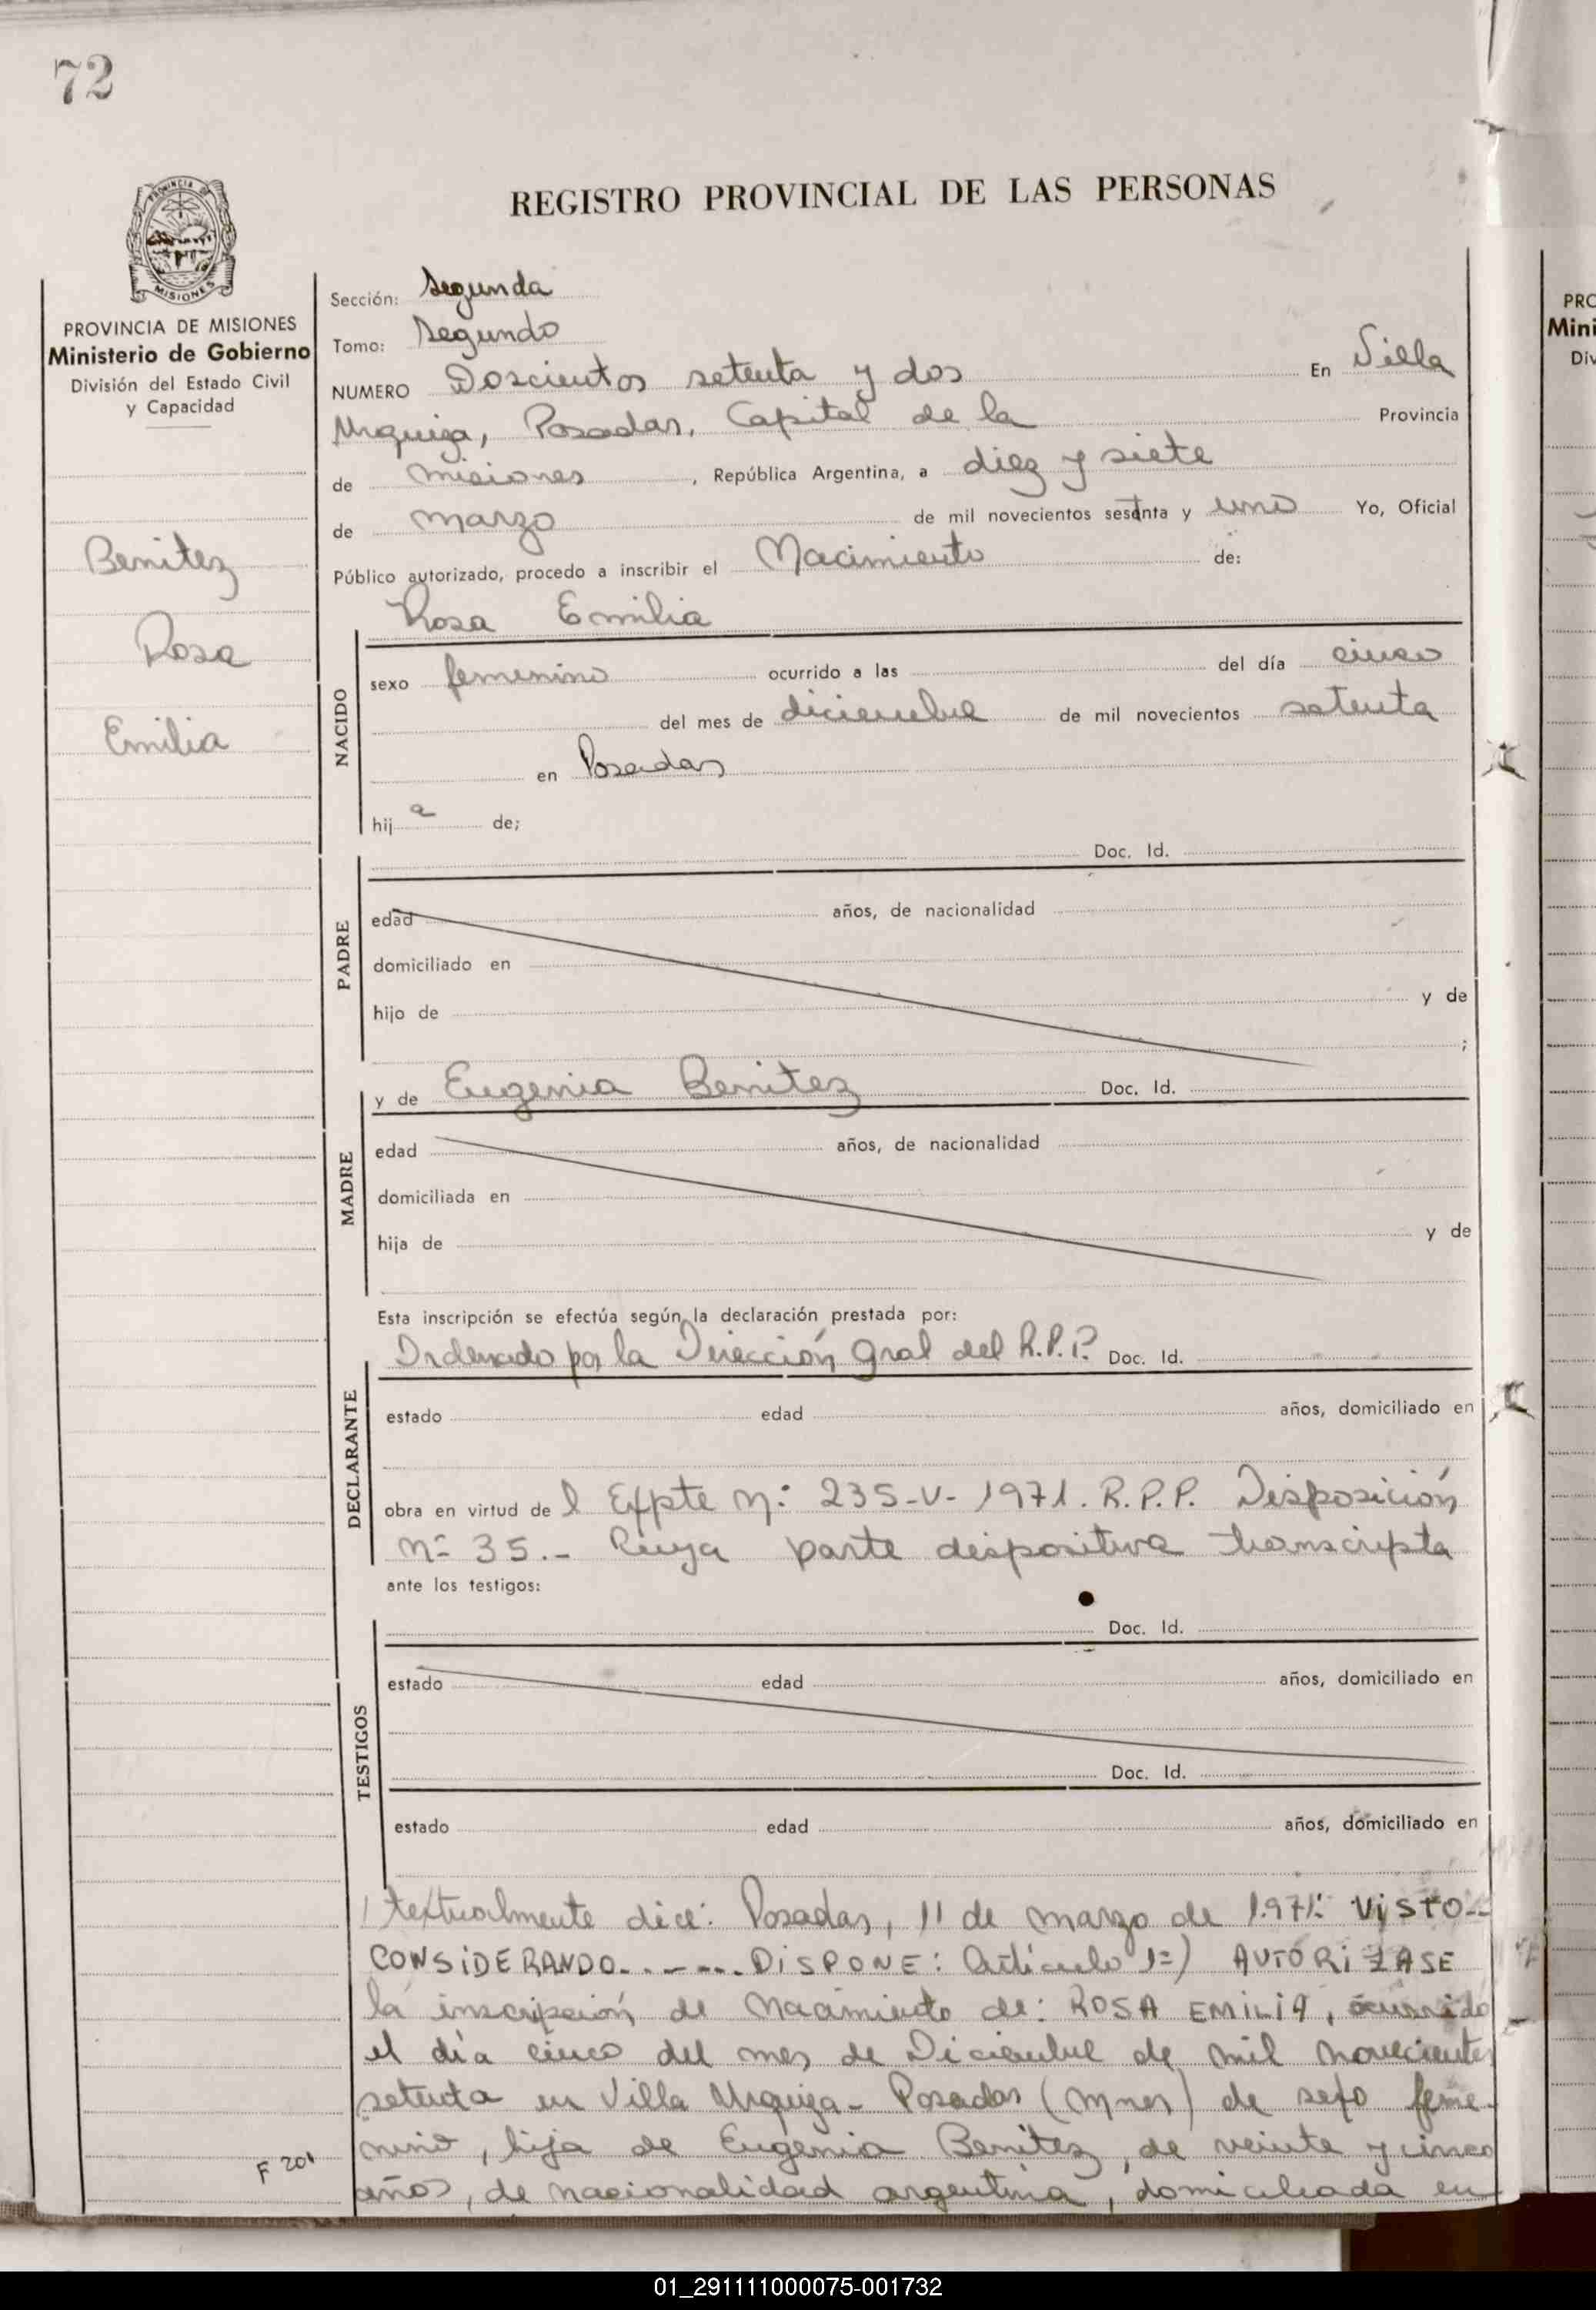 72
REGISTRO PROVINCIAL DE LAS PERSONAS
PROVINCIA DE
MISIONES
PROVINCIA DE MISIONES
Ministerio de Gobierno
División del Estado Civil
y Capacidad
Benitez
Rosa
Emilia
Sección: Segunda
Tomo: Segundo
NUMERO Doscientos setenta y dos En Villa
Urquiza, Posadas, Capital de la Provincia
de misiones, República Argentina, a diez y siete
de marzo de mil novecientos sesenta y uno Yo, Oficial
Público autorizado, procedo a inscribir el Nacimiento de:
Rosa Emilia
NACIDO
sexo femenino ocurrido a las del día cinco
del mes de diciembre de mil novecientos setenta
en Posadas
hija de;
Doc. Id.
PADRE
edad años, de nacionalidad
domiciliado en
hijo de y de
;
y de Eugenia Benitez Doc. Id.
MADRE
edad años, de nacionalidad
domiciliada en
hija de y de
Esta inscripción se efectúa según la declaración prestada por:
Ordenado por la Dirección Gral del R.P.P. Doc. Id.
DECLARANTE
estado edad años, domiciliado en
obra en virtud del Expte Nº 235-V-1971. R.P.P. Disposición
Nº 35.- Cuya parte dispositiva transcripta
ante los testigos:
Doc. Id.
TESTIGOS
estado edad años, domiciliado en
Doc. Id.
estado edad años, domiciliado en
textualmente dice: Posadas, 11 de marzo de 1.971: VISTO..
CONSIDERANDO....... DISPONE: Artículo 1º) AUTORIZASE
la inscripción de Nacimiento de: ROSA EMILIA, ocurrido
el día cinco del mes de Diciembre de mil novecientos
setenta en Villa Urquiza - Posadas (Mnes) de sexo feme-
nino, hija de Eugenia Benítez, de veinte y cinco
años, de nacionalidad argentina, domiciliada en
F 201
PRO
Mini
Div
01_291111000075-001732